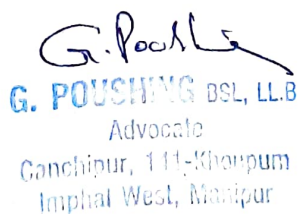 G. Poushing
G. POUSHING BSL, LL.B
Advocate
Canchipur, 111-Khoupum
Imphal West, Manipur